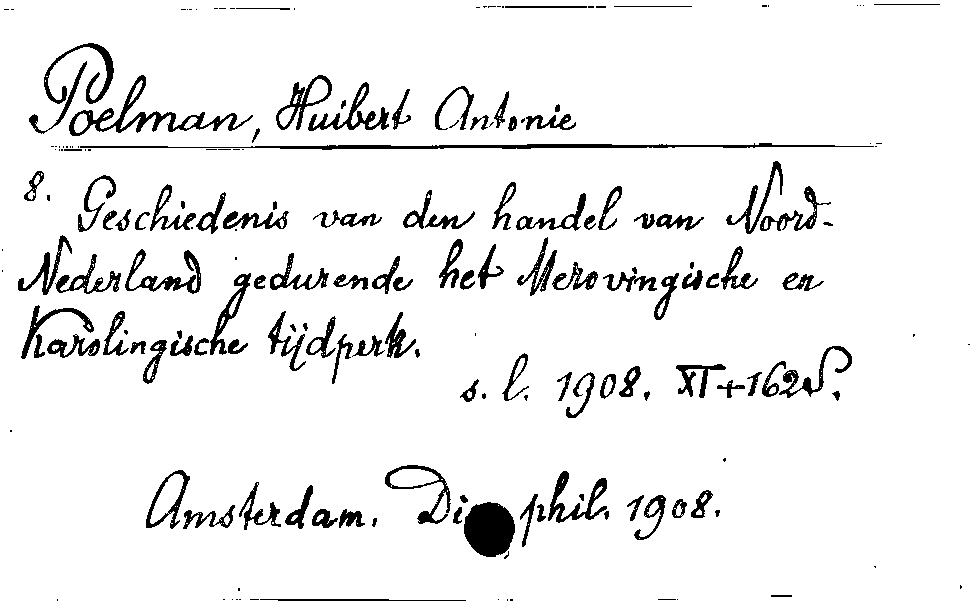 Poelman, Huibert Antonie
8. Geschiedenis van den handel van Noord-
Nederland gedurende het Merovingische en
Karolingische tijdperk.
s. l. 1908. XI+162 S.
Amsterdam. phil. 1908.